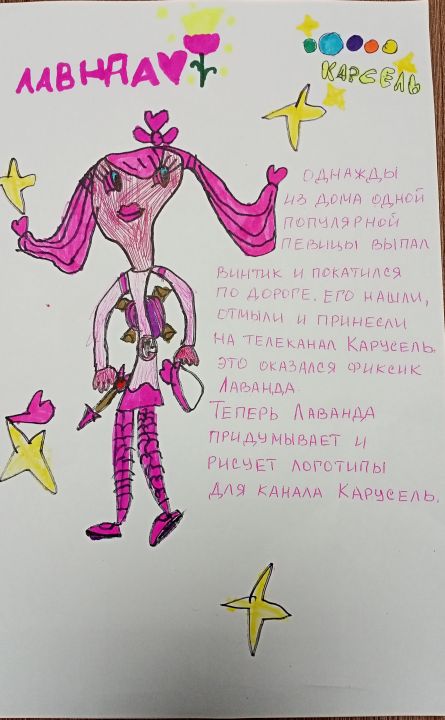 ЛАВНДА
КАРСЕЛЬ
ОДНАЖДЫ
ИЗ ДОМА ОДНОЙ
ПОПУЛЯРНОЙ
ПЕВИЦЫ ВЫПАЛ
ВИНТИК И ПОКАТИЛСЯ
ПО ДОРОГЕ. ЕГО НАШЛИ,
ОТМЫЛИ И ПРИНЕСЛИ
НА ТЕЛЕКАНАЛ КАРУСЕЛЬ.
ЭТО ОКАЗАЛСЯ ФИКСИК
ЛАВАНДА.
ТЕПЕРЬ ЛАВАНДА
ПРИДУМЫВАЕТ И
РИСУЕТ ЛОГОТИПЫ
ДЛЯ КАНАЛА КАРУСЕЛЬ.